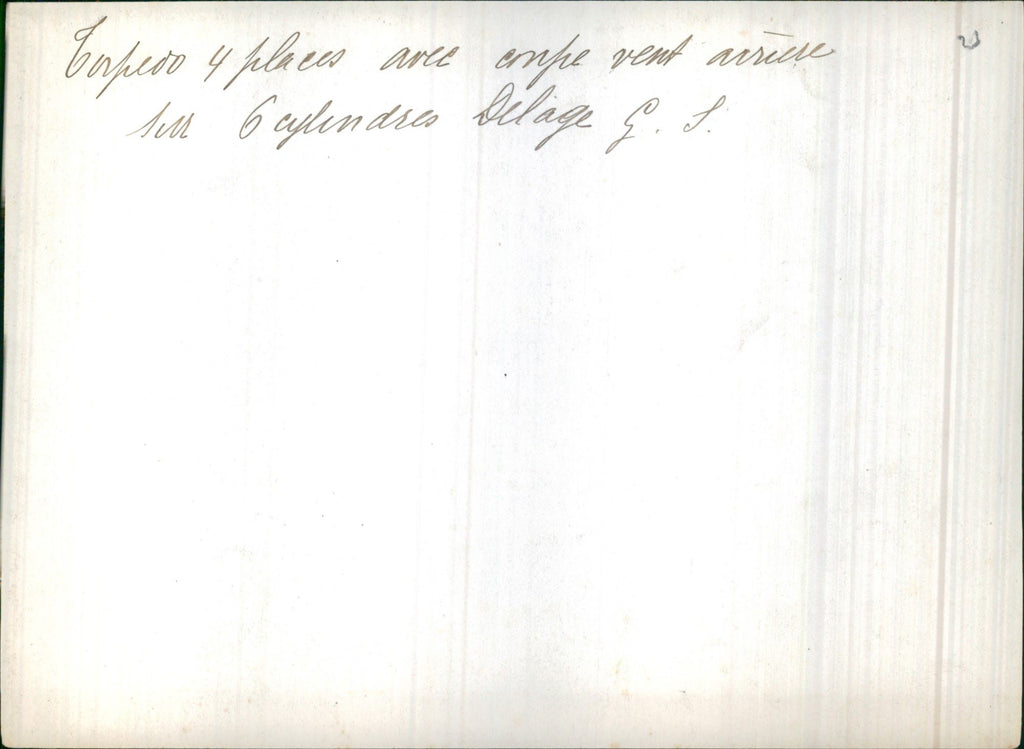 Torpedo 4 places avec coupe vent arrière
sur 6 cylindres Delage G. S.